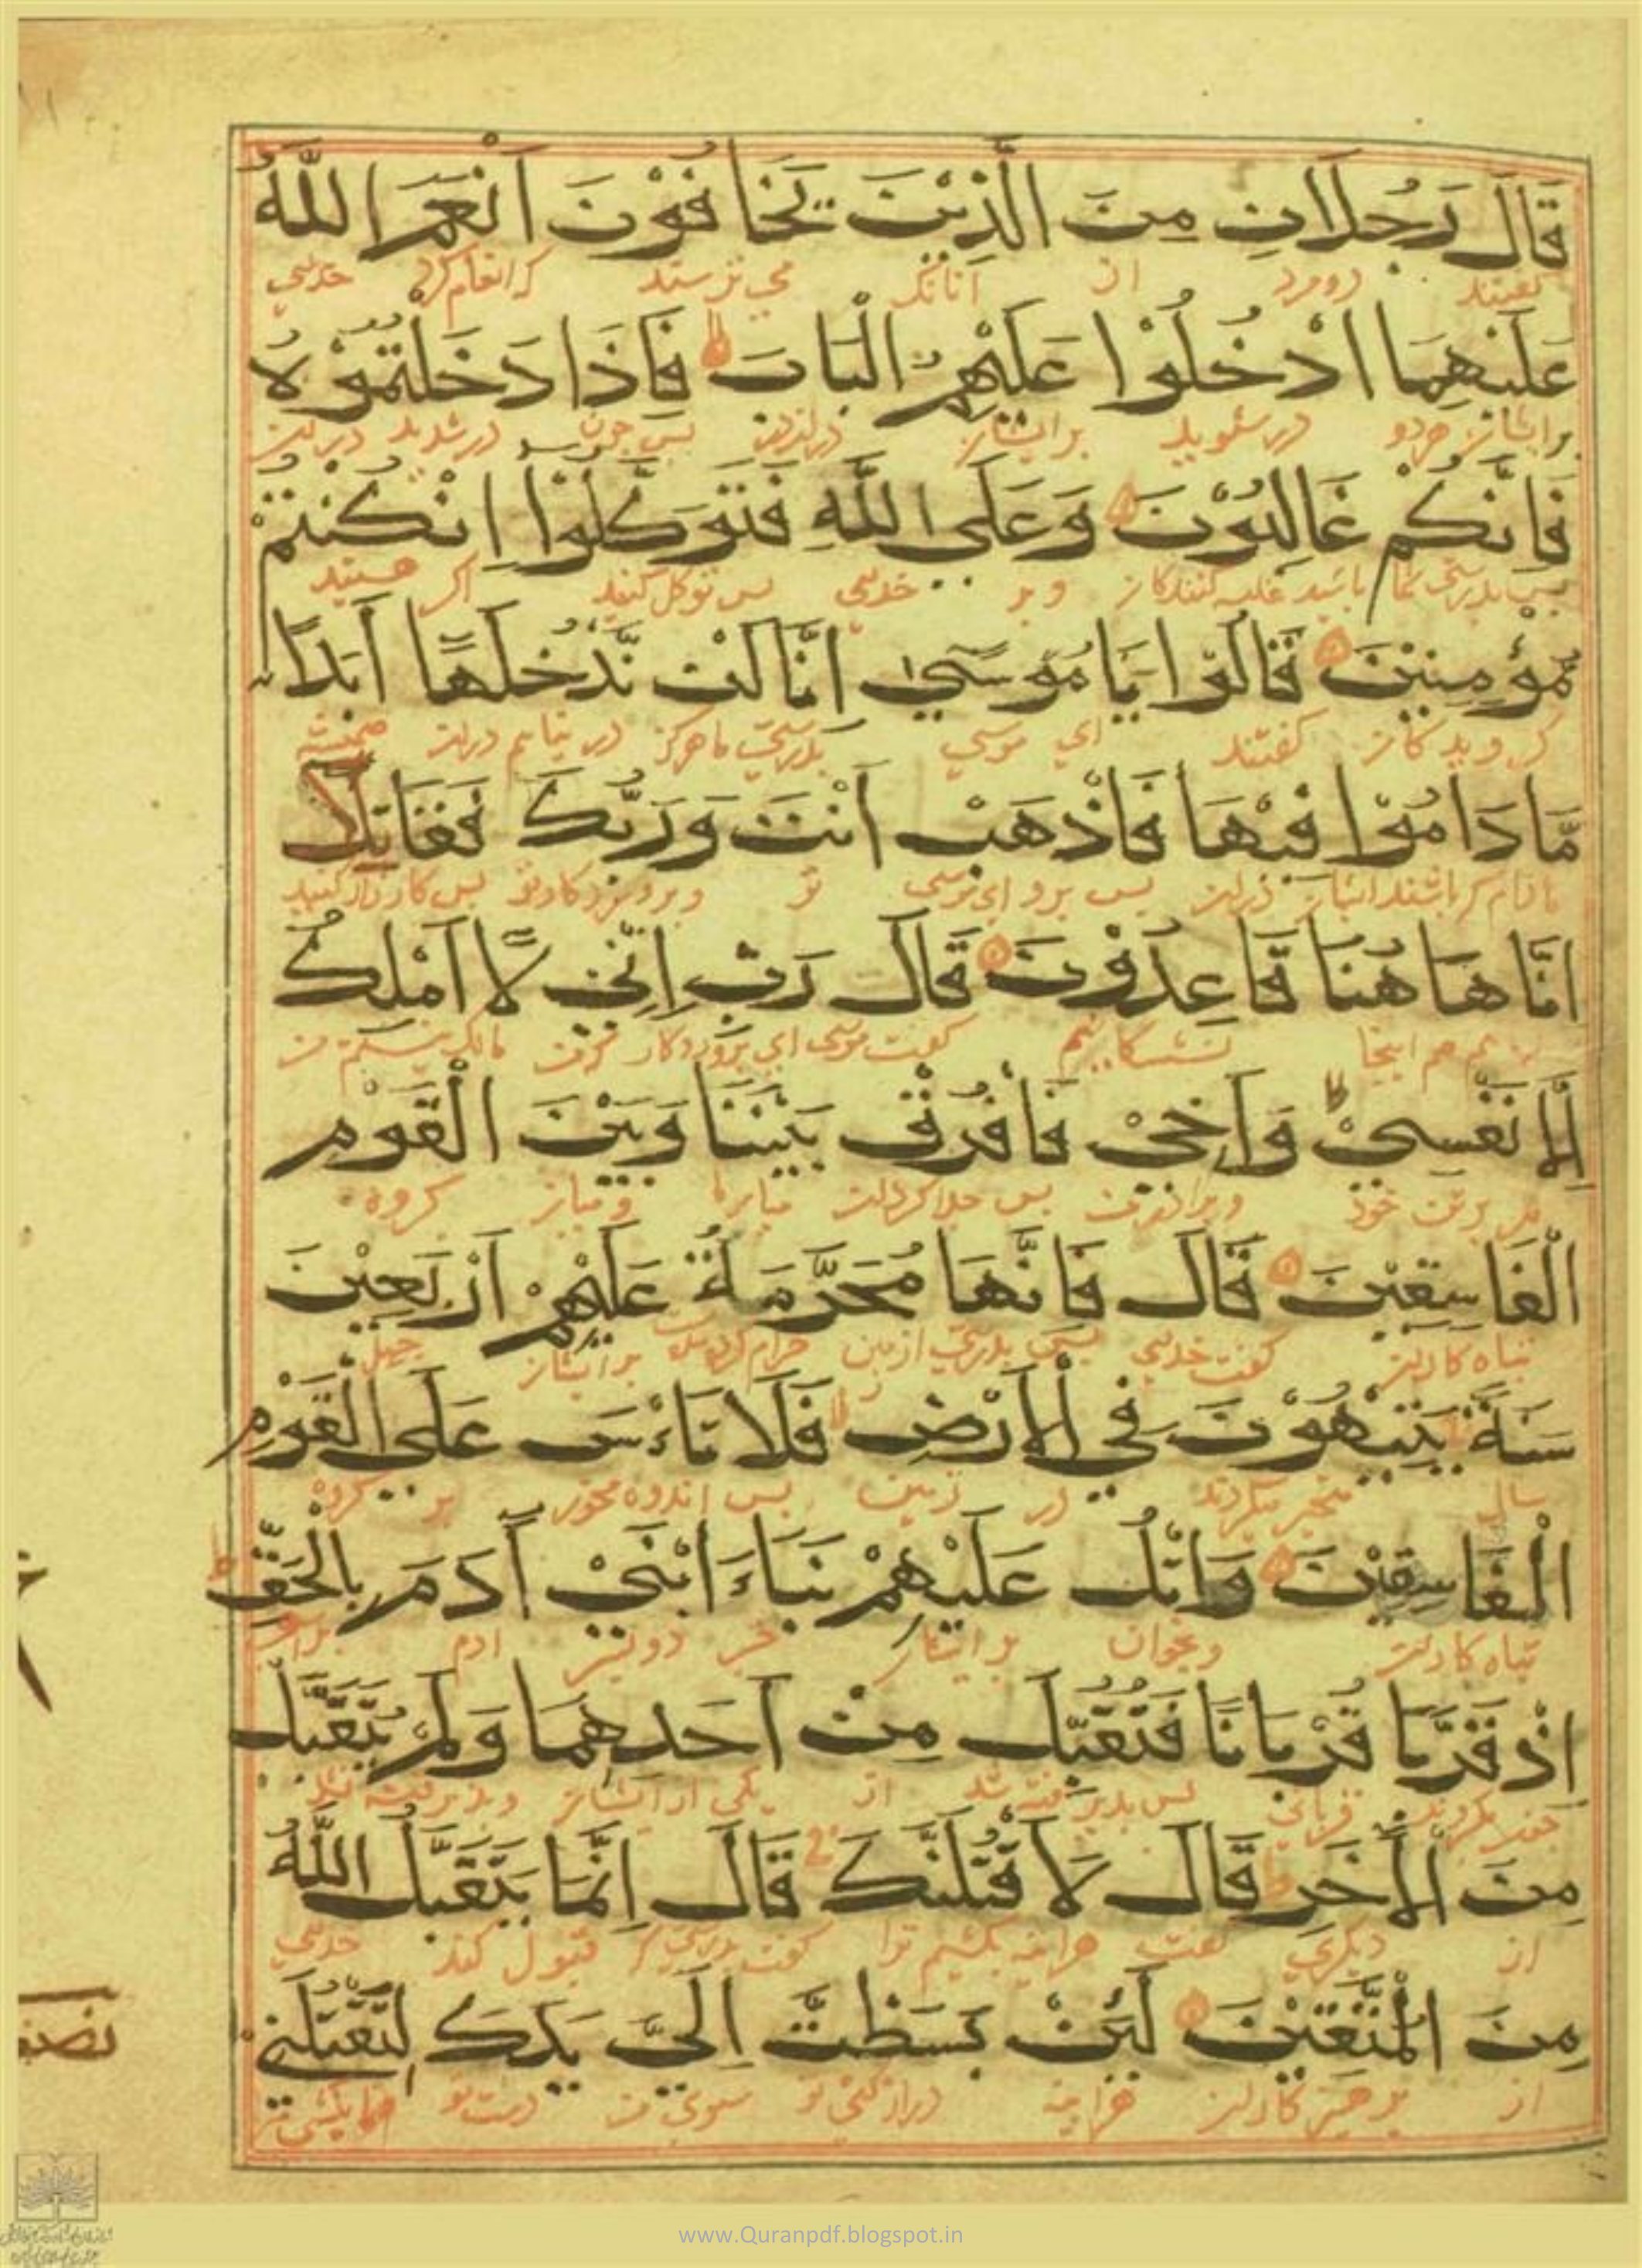 قَالَ رَجُلَانِ مِنَ الَّذِيْنَ يَخَافُوْنَ اَنْعَمَ اللّٰهُ
گفتند دو مرد از آنانك می ترسند که انعام کرد خدای
عَلَيْهِمَا ادْخُلُوْا عَلَيْهِمُ الْبَابَ فَاِذَا دَخَلْتُمُوْهُ
بر ایشان هر دو در شوید بر ایشان پس چون در شدید
فَاِنَّكُمْ غَالِبُوْنَ وَعَلَى اللّٰهِ فَتَوَكَّلُوْا اِنْ كُنْتُمْ
پس بدرستی شما باشید غلبه کنندگان و بر خدای پس توکل کنید اگر هستید
مُّؤْمِنِيْنَ قَالُوْا يَا مُوْسٰى اِنَّا لَنْ نَّدْخُلَهَا اَبَدًا
گرویدگان گفتند ای موسی بدرستی ما هرگز در نیاییم همیشه
مَّا دَامُوْا فِيْهَا فَاذْهَبْ اَنْتَ وَرَبُّكَ فَقَاتِلَا
مادام که باشند ایشان پس برو ای موسی تو و پروردگار تو پس کارزار کنید
اِنَّا هَاهُنَا قَاعِدُوْنَ قَالَ رَبِّ اِنِّيْ لَا اَمْلِكُ
هم اینجا گفت موسی ای پروردگار مالك نیستم
اِلَّا نَفْسِيْ وَاَخِيْ فَافْرُقْ بَيْنَنَا وَبَيْنَ الْقَوْمِ
بر تن خود و برادر من پس جدا کردان میان ما و میان گروه
الْفَاسِقِيْنَ قَالَ فَاِنَّهَا مُحَرَّمَةٌ عَلَيْهِمْ اَرْبَعِيْنَ
تباه کاران گفت خدای پس بدرستی بر ایشان چهل
سَنَةً يَتِيْهُوْنَ فِي الْاَرْضِ فَلَا تَاْسَ عَلَى الْقَوْمِ
سال در زمین پس اندوه مخور بر گروه
الْفَاسِقِيْنَ وَاتْلُ عَلَيْهِمْ نَبَاَ ابْنَيْ اٰدَمَ بِالْحَقِّ
تباه کاران و بخوان بر ایشان خبر دو پسر ادم
اِذْ قَرَّبَا قُرْبَانًا فَتُقُبِّلَ مِنْ اَحَدِهِمَا وَلَمْ يُتَقَبَّلْ
قربانی پس پذیرفته شد از یکی از ایشان و پذیرفته نشد
مِنَ الْاٰخَرِ قَالَ لَاَقْتُلَنَّكَ قَالَ اِنَّمَا يَتَقَبَّلُ اللّٰهُ
از دیگری گفت هراینه بکشیم ترا گفت بدرستی که قبول کند خدای
مِنَ الْمُتَّقِيْنَ لَئِنْ بَسَطْتَّ اِلَيَّ يَدَكَ لِتَقْتُلَنِيْ
از پرهیزکاران هراینه دراز کنی تو سوی من دست تو
نصف
www.Quranpdf.blogspot.in